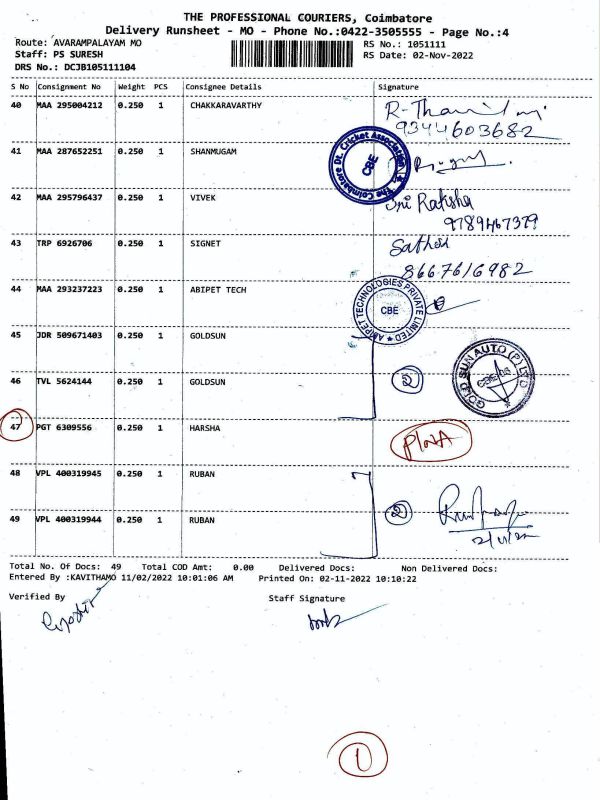 THE PROFESSIONAL COURIERS, Coimbatore
Delivery Runsheet - MO - Phone No.:0422-3505555 - Page No.:4
Route: AVARAMPALAYAM MO RS No.: 1051111
Staff: PS SURESH RS Date: 02-Nov-2022
DRS No.: DCJB105111104
S No Consignment No Weight PCS Consignee Details Signature
40 MAA 295004212 0.250 1 CHAKKARAVARTHY
9344603682
41 MAA 287652251 0.250 1 SHANMUGAM
The Coimbatore Dt. Cricket Association CBE
42 MAA 295796437 0.250 1 VIVEK Sri Raksha
9789467379
43 TRP 6926706 0.250 1 SIGNET
8667616982
44 MAA 293237223 0.250 1 ABIPET TECH
ABIPET TECHNOLOGIES PRIVATE LIMITED CBE
45 JDR 509671403 0.250 1 GOLDSUN
46 TVL 5624144 0.250 1 GOLDSUN 2 GOLD SUN AUTO (P) LTD
47 PGT 6309556 0.250 1 HARSHA
48 VPL 400319945 0.250 1 RUBAN
49 VPL 400319944 0.250 1 RUBAN 2
2/11/22
Total No. Of Docs: 49 Total COD Amt: 0.00 Delivered Docs: Non Delivered Docs:
Entered By :KAVITHAMO 11/02/2022 10:01:06 AM Printed On: 02-11-2022 10:10:22
Verified By Staff Signature
1